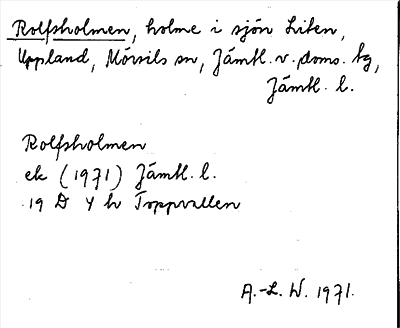 Rolfsholmen, holme i sjön Liten,
Uppland, Mörsils sn, Jämtl. v. doms. tg,
Jämtl. l.
Rolfsholmen
ek (1971) Jämtl. l.
19 D 4 h Toppvallen
A.-L. W. 1971.